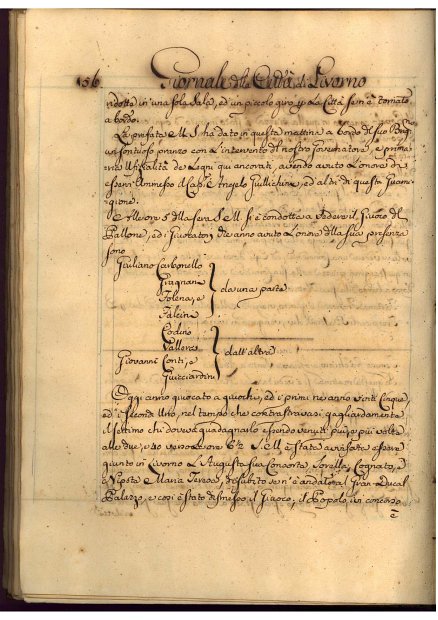 56 Giornale della Città di Livorno
ridotta in una sola Sala, ed un piccolo giro p la Città se n'è tornato
a bordo.
La prefata M. S. ha dato in questa mattina a bordo del suo
un sontuoso pranzo con l'intervento del nostro Governatore, e prima
ria Uffizialità de Legni qui ancorati, avendo avuto l'onore di
esservi Ammesso il Cap. Angelo, ed altri di questa Guarni
gione.
Alle ore 5 della sera S. M. si è condotta a vedere il Giuoco del
Pallone, ed i Giuocatori che anno avuto l'onore della sua presenza
sono
Giuliano Carbonello
Gragnani
Folena, e
Falcini
da una parte
Codino
Giovanni Conti, e
Guicciardini
dall'altra
Oggi anno giuocato a giuochi, ed i primi ne anno vinti Cinque,
ed i secondi Uno, nel tempo che contrastavasi gagliardamente
il settimo che doveva guadagnarlo essendo venuti più, e più volte
alle due, e so verso le ore 6½ S. M. è stata avvisata essere
giunto in Livorno l'Augusta sua Consorte Sorella, Cognato, e
Nipote Maria Teresa, subito se n'è andato al Gran Ducal
Palazzo, e così è stato dismesso il Giuoco, il Popolo in concorso
è